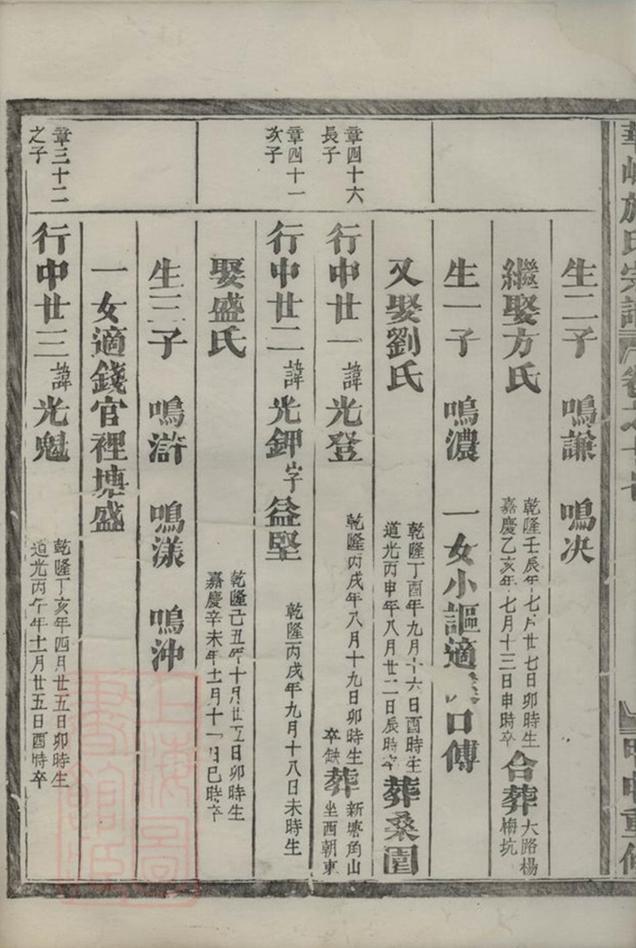 氏宗譜 卷之十
生二子 鳴謙 鳴决
繼娶方氏 乾隆壬辰年七月廿七日卯時生 嘉慶乙亥年七月十三日申時卒 合葬 大路楊梅坑
生一子 鳴濃 一女小謳適 口傅
又娶劉氏 乾隆丁酉年九月十六日酉時生 道光丙申年八月廿二日辰時卒 葬桑園
章四十六長子
行中廿一 諱光登 乾隆丙戌年八月十九日卯時生 卒 葬 新塘角山坐酉朝東
章四十一次子
行中廿二 諱光鉀 字益堅 乾隆丙戌年九月十八日未時生
娶盛氏 乾隆己丑年十月廿五日卯時生 嘉慶辛未年十二月十一日巳時卒
生三子 鳴滸 鳴漾 鳴沖
一女適錢官裡塘盛
章三十二之子
行中廿三 諱光魁 乾隆丁亥年四月廿五日卯時生 道光丙午年十一月廿五日酉時卒
上海圖書館藏